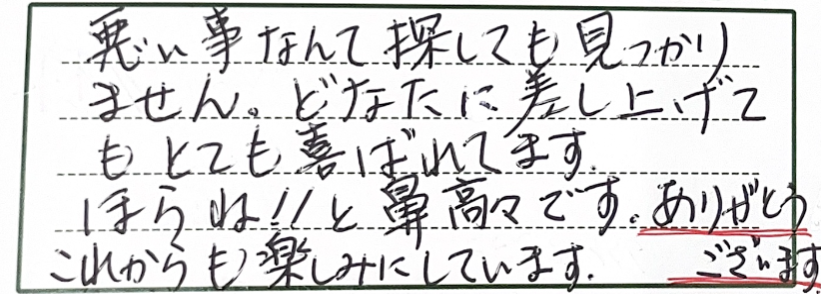 悪い事なんて探しても見つかり
ません。どなたに差し上げて
もとても喜ばれてます.
ほらね!!と鼻高々です。ありがとう
これからも楽しみにしています. ございます